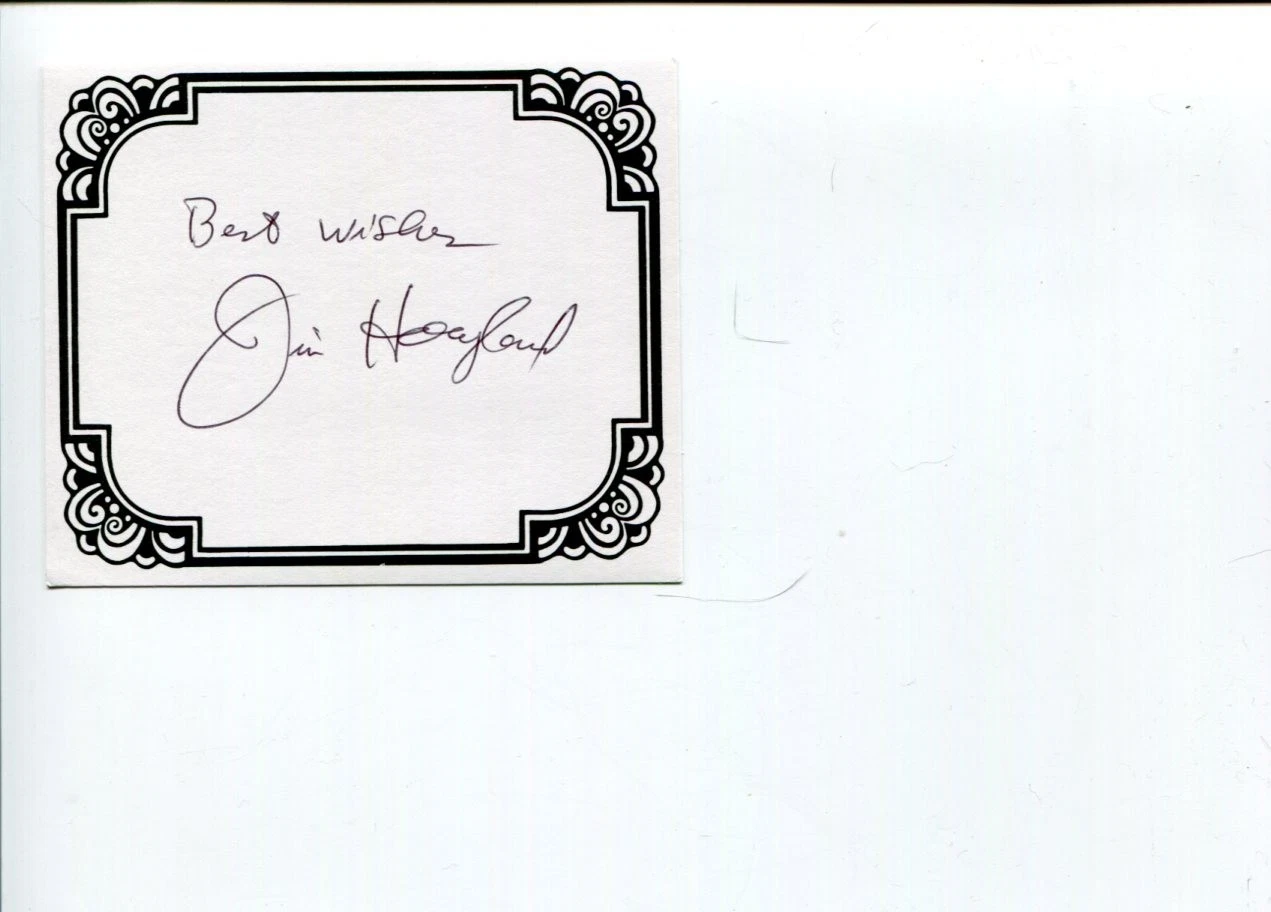 Best wishes
Jim Hoagland